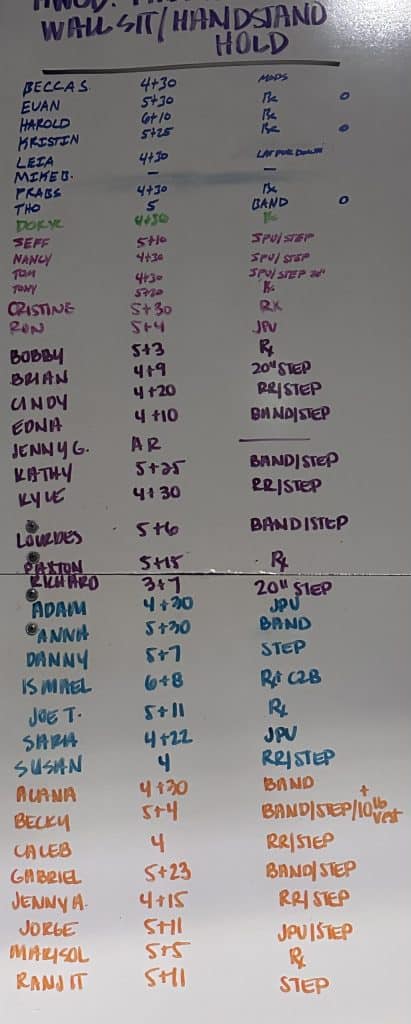 WALL SIT/HANDSTAND
HOLD
BECCA S. 4+30 MODS
EVAN 5+30 Rx O
HAROLD 6+10 Rx
KRISTIN 5+25 Rx O
LEIA 4+30
MIKE B. - -
PRABS 4+30 Rx
THO 5 BAND O
4+30 Rx
JEFF 5+10 JPU/STEP
NANCY 4+30 JPU/STEP
TOM 4+30 JPU/STEP 20"
TONY 5+20 Rx
CRISTINE 5+30 RX
RON 5+4 JPU
BOBBY 5+3 Rx
BRIAN 4+9 20" STEP
CINDY 4+20 RR/STEP
EDNA 4+10 BAND/STEP
JENNY G. AR —
KATHY 5+25 BAND/STEP
KYLE 4+30 RR/STEP
LOURDES 5+6 BAND/STEP
PAXTON 5+15 Rx
RICHARD 3+7 20" STEP
ADAM 4+30 JPU
ANNA 5+30 BAND
DANNY 5+7 STEP
ISMAEL 6+8 Rx+ C2B
JOE T. 5+11 Rx
SARA 4+22 JPU
SUSAN 4 RR/STEP
ALANA 4+30 BAND
BECKY 5+4 BAND/STEP/10lb + Vest
CALEB 4 RR/STEP
GABRIEL 5+23 BAND/STEP
JENNY A. 4+15 RR/STEP
JORGE 5+11 JPU/STEP
MARISOL 5+5 Rx
RANJIT 5+11 STEP